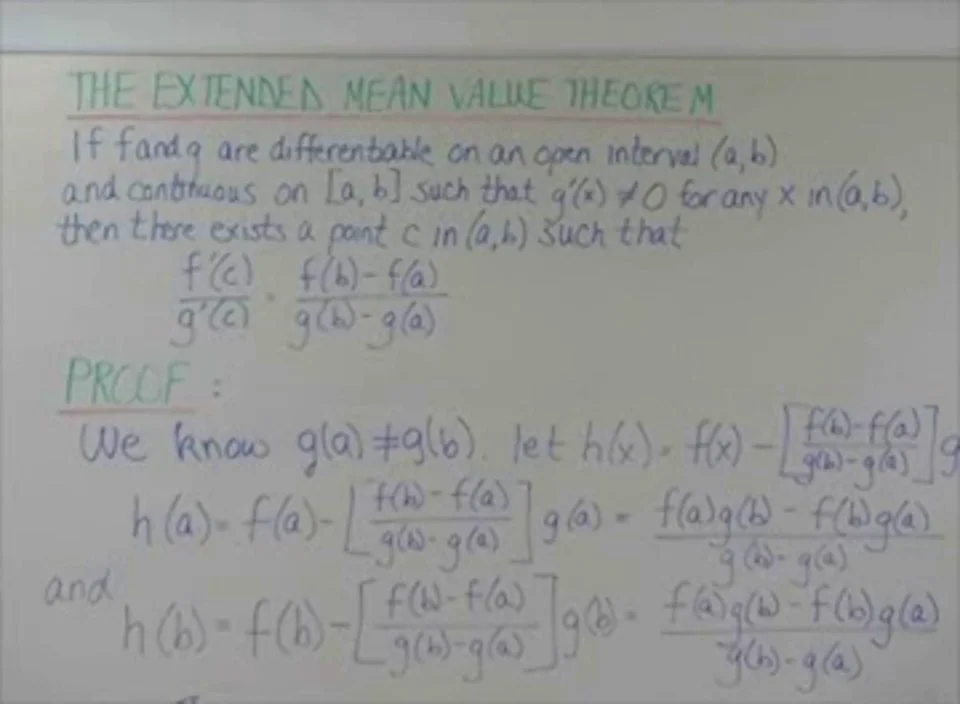 THE EXTENDED MEAN VALUE THEOREM
If f and g are differentiable on an open interval (a,b)
and continuous on [a,b] such that g'(x) ≠ 0 for any x in (a,b),
then there exists a point c in (a,b) such that
f'(c)/g'(c) = f(b)-f(a)/g(b)-g(a)
PROOF :
We know g(a) ≠ g(b). let h(x) = f(x) - [f(b)-f(a)/g(b)-g(a)] g
h(a) = f(a) - [f(b)-f(a)/g(b)-g(a)] g(a) = f(a)g(b) - f(b)g(a)/g(b)-g(a)
and
h(b) = f(b) - [f(b)-f(a)/g(b)-g(a)] g(b) = f(a)g(b) - f(b)g(a)/g(b)-g(a)